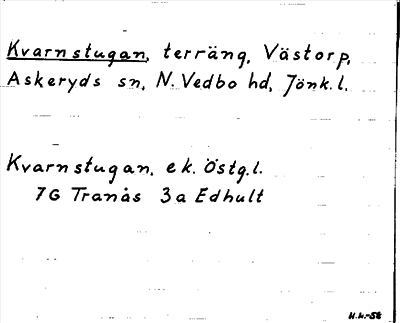 Kvarnstugan, terräng, Västorp,
Askeryds sn, N. Vedbo hd, Jönk. l.
Kvarnstugan, ek. Östg. l.
7G Tranås 3a Edhult